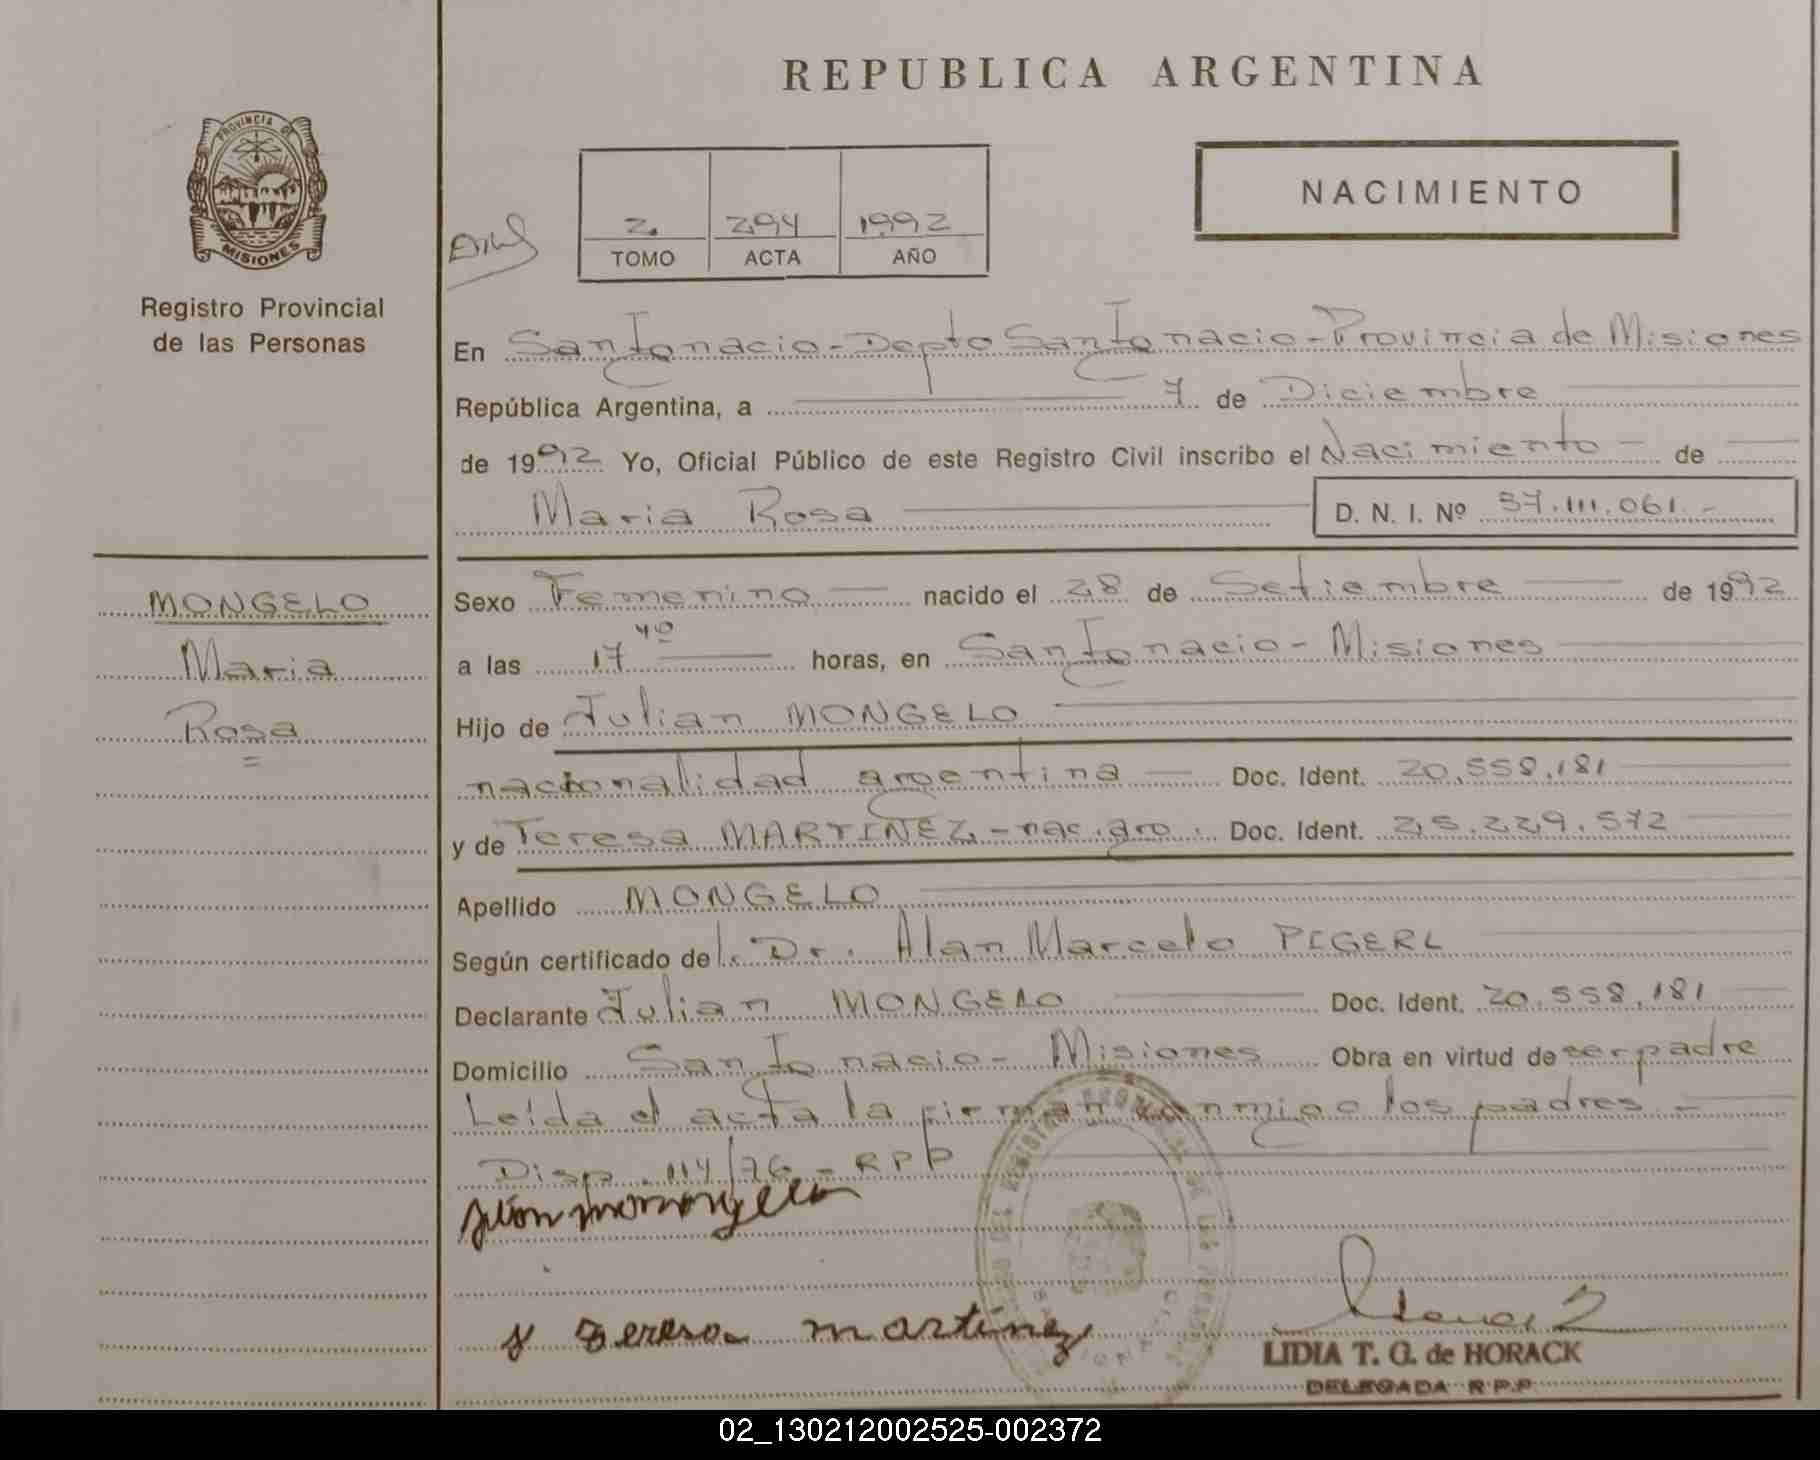 REPUBLICA ARGENTINA
NACIMIENTO
PROVINCIA DE
MISIONES
Registro Provincial
de las Personas
2. 294 1992
TOMO ACTA AÑO
En San Ignacio - Depto San Ignacio - Provincia de Misiones
República Argentina, a 7 de Diciembre
de 1992 Yo, Oficial Público de este Registro Civil inscribo el Nacimiento - de
Maria Rosa D. N. I. Nº 37.111.061.-
MONGELO
Maria
Rosa
Sexo Femenino nacido el 28 de Setiembre de 1992
a las 17 40 horas, en San Ignacio - Misiones
Hijo de Julian MONGELO
nacionalidad argentina Doc. Ident. 20.558.181
y de Teresa MARTINEZ - nac. arg. Doc. Ident. 25.229.572
Apellido MONGELO
Según certificado del. Dr. Alan Marcelo PIGERL
Declarante Julian MONGELO Doc. Ident. 20.558.181
Domicilio San Ignacio - Misiones Obra en virtud de ser padre
Leída el acta la firman conmigo los padres -
Disp. 114/76 - RPP
y Teresa martinez
LIDIA T. G. de HORACK
DELEGADA R.P.P
02_130212002525-002372